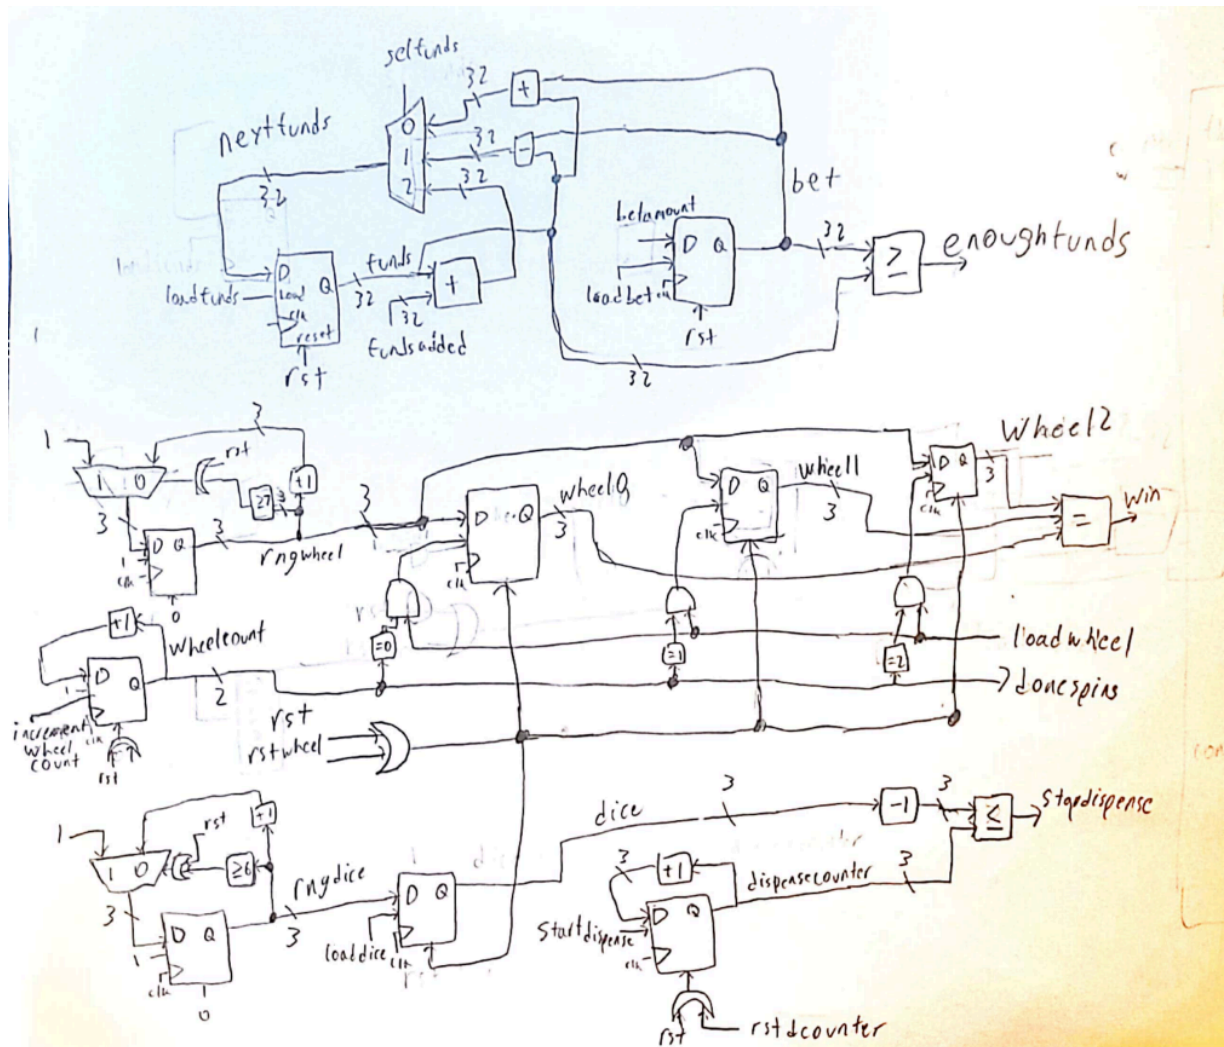 selfunds
32
+
nextfunds
0
32
-
1
32
2
32
bet
betamount
D Q
32
≥
enoughfunds
D
funds
loadfunds
load
Q
32
+
clk
32
reset
fundsadded
loadbet
clk
rst
rst
32
3
1
rst
1 0
+1
≥7
3
3
3
D Q
3
rngwheel
1
clk
0
3
D Q
wheel0
3
clk
D Q
wheel1
3
clk
D Q
3
Wheel2
clk
=
win
+1
wheelcount
D
Q
2
1
increment
wheel
count
clk
rst
=0
=1
=2
loadwheel
donespins
rst
rstwheel
1
+1
rst
1 0
≥6
3
D Q
1
clk
0
rngdice
3
D Q
loaddice
clk
dice
3
-1
3
≤
stopdispense
3
+1
dispensecounter
3
D Q
startdispense
clk
rst
rstdcounter